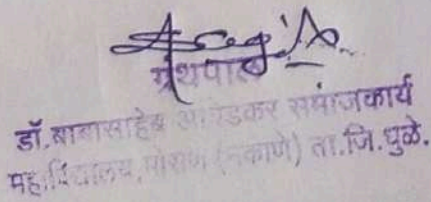 ग्रंथपाल
डॉ. बाबासाहेब आंबेडकर समाजकार्य
महाविद्यालय, मोराणे (नकाणे) ता. जि. धुळे.